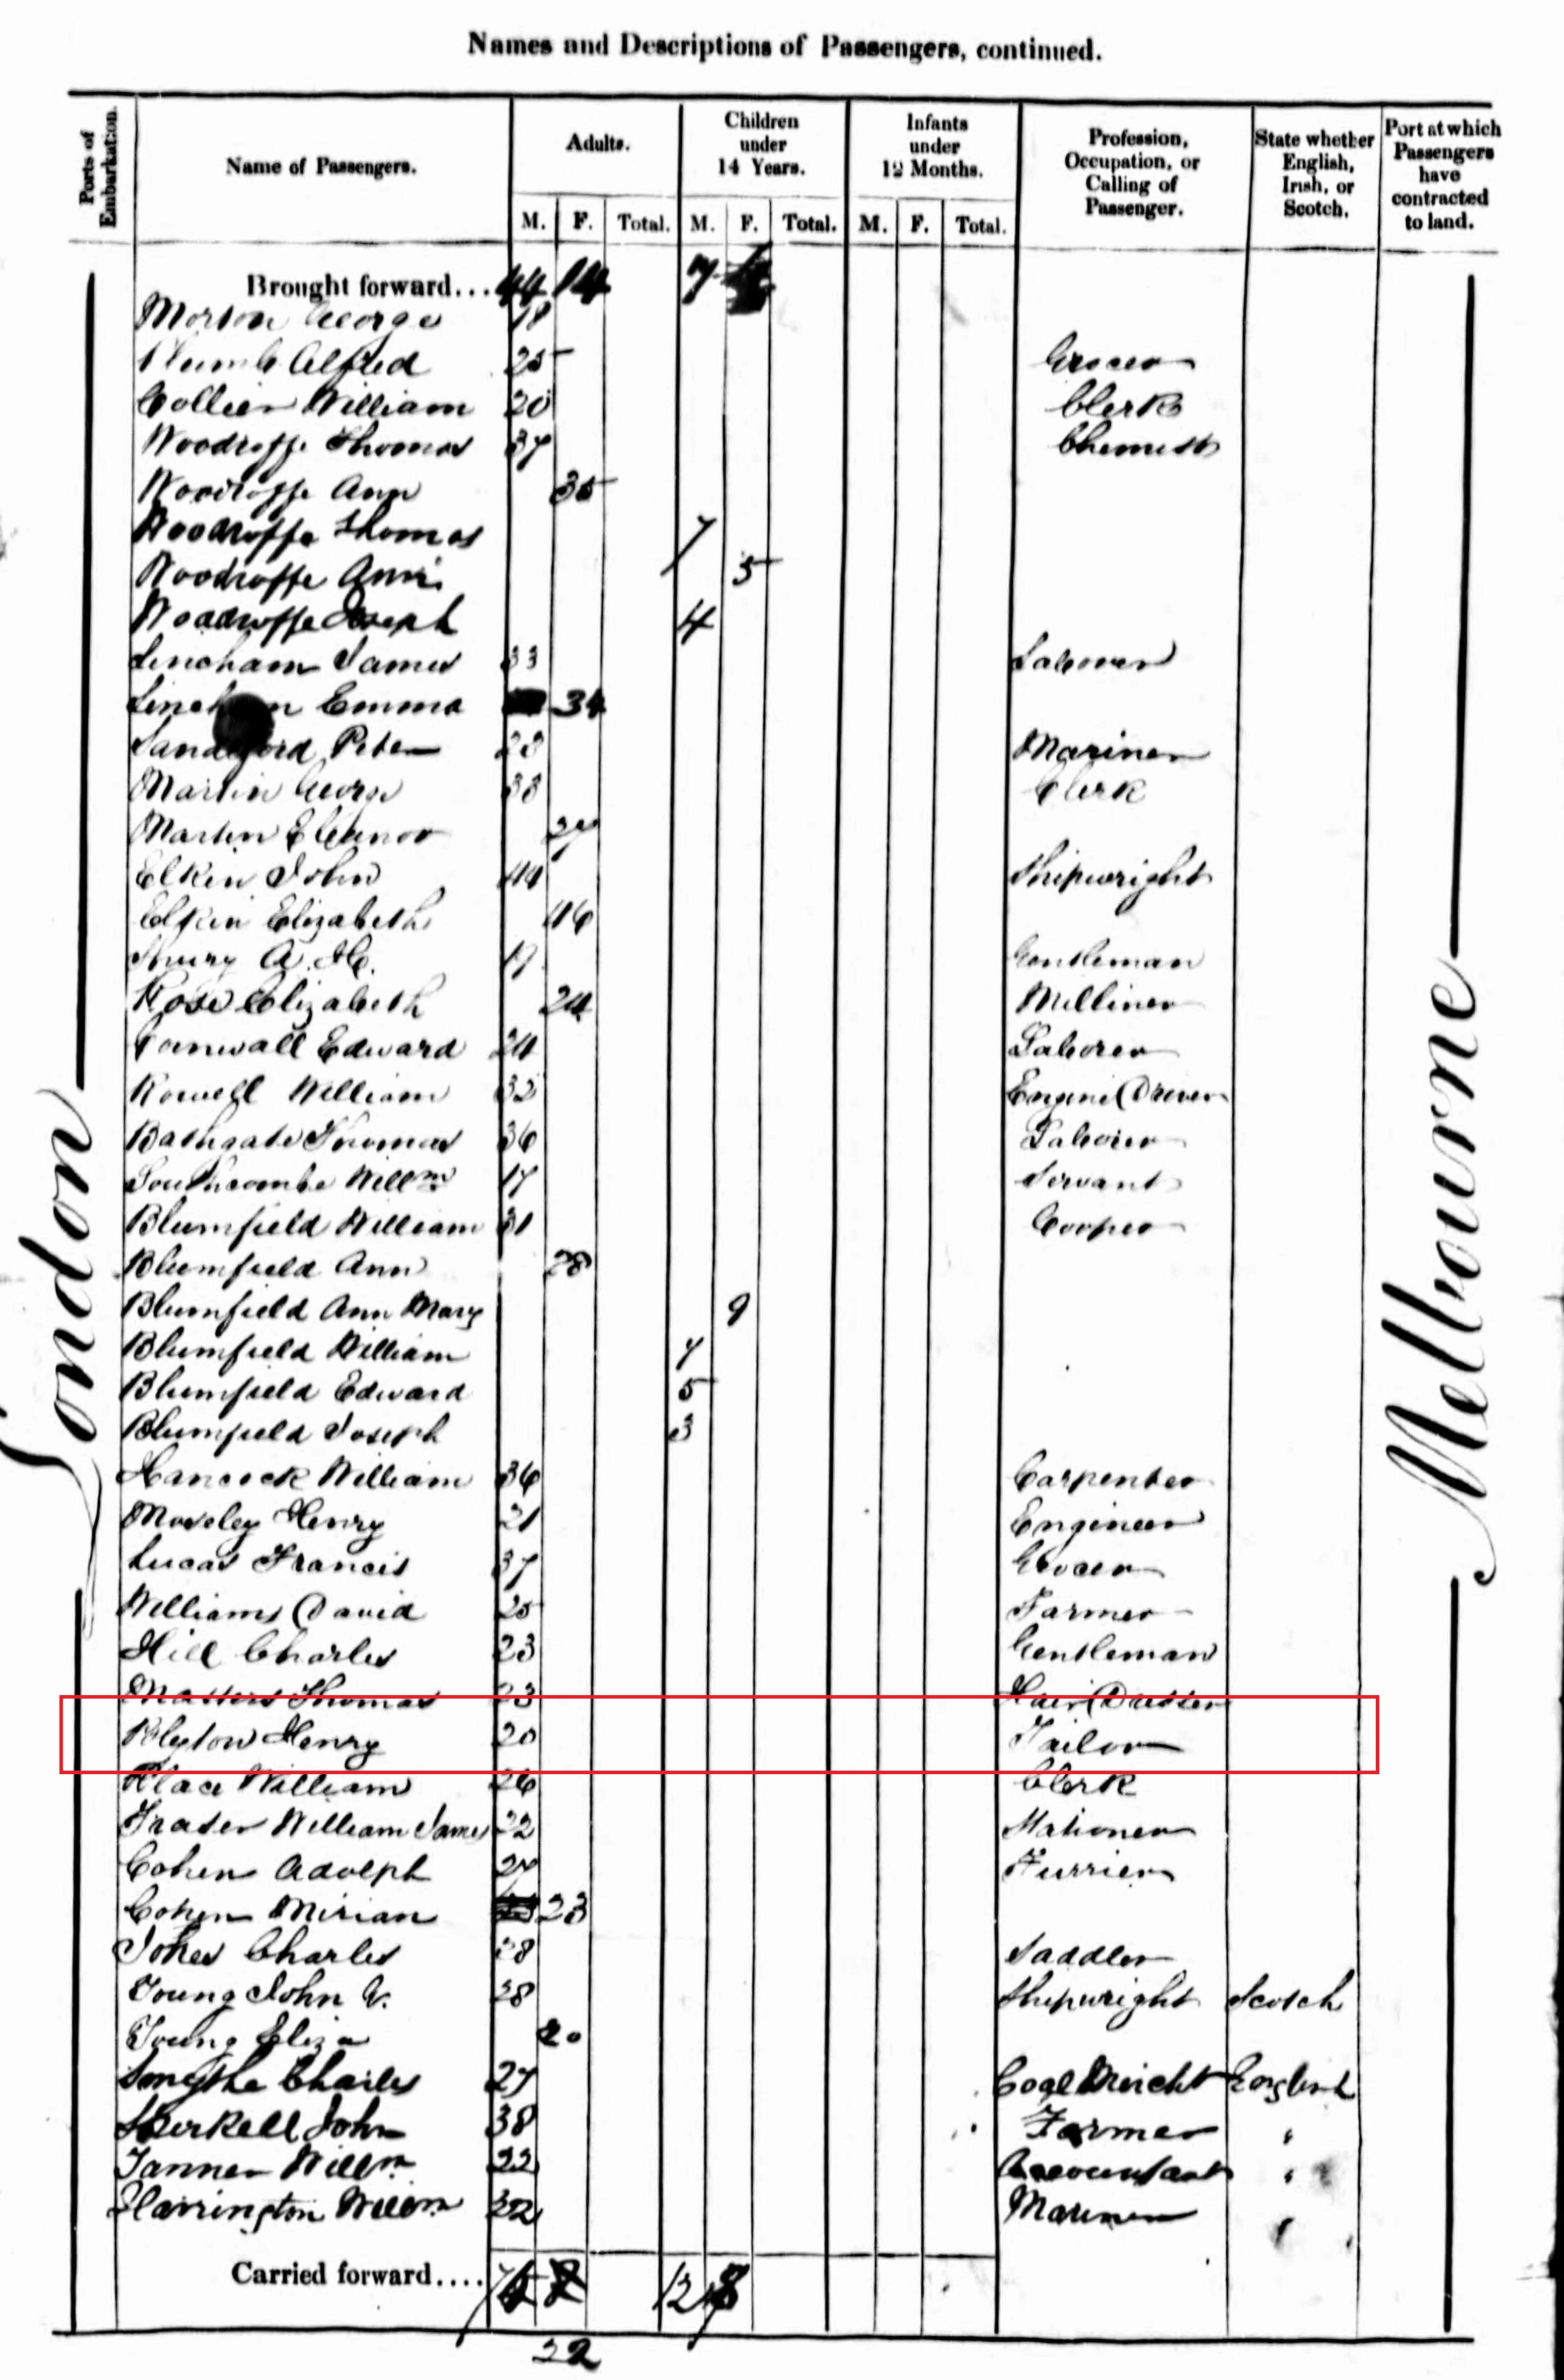 Names and Descriptions of Passengers, continued.
Ports of Embarkation.
Name of Passengers.
Adults.
Children under 14 Years.
Infants under 12 Months.
Profession, Occupation, or Calling of Passenger.
State whether English, Irish, or Scotch.
Port at which Passengers have contracted to land.
M. F. Total. M. F. Total. M. F. Total.
London
Melbourne
Brought forward... 44 14 7
Morton George 18
Plumb Alfred 25 Grocer
Collier William 20 Clerk
Woodroffe Thomas 37 Chemist
Woodroffe Ann 35
Woodroffe Thomas 7
Woodroffe 5
Woodroffe Joseph 4
Lincham James 33 Laborer
Emma 34
Peter 23 Mariner
Martin George 33 Clerk
Martin Eleanor 27
Elkin John 44 Shipwright
Elkin Elizabeth 46
A. H. Gentleman
Rose Elizabeth 24 Milliner
Cornwall Edward 24 Laborer
Rowell William 32 Engine Driver
Bathgate Thomas 36 Laborer
Southcombe Willm 17 Servant
Blumfield William 31 Cooper
Blumfield Ann 28
Blumfield Ann Mary 9
Blumfield William 7
Blumfield Edward 5
Blumfield Joseph 3
Hancock William 36 Carpenter
Moseley Henry 21 Engineer
Lucas Francis 37 Grocer
Williams David 25 Farmer
Hill Charles 23 Gentleman
Masters Thomas 23 Hair Dresser
Blyton Henry 20 Tailor
Place William 26 Clerk
Frater William James 22 Stationer
Cohen Adolph 27 Furrier
Cohen Mirian 23
Jones Charles 28 Saddler
Young John V. 28 Shipwright Scotch
Young Eliza 20
Smythe Charles 27 Coal Mercht English
Sherkell John 38 Farmer "
Tanner Willm 22 Accountant "
Harrington Willm 32 Mariner "
Carried forward.... 12
22